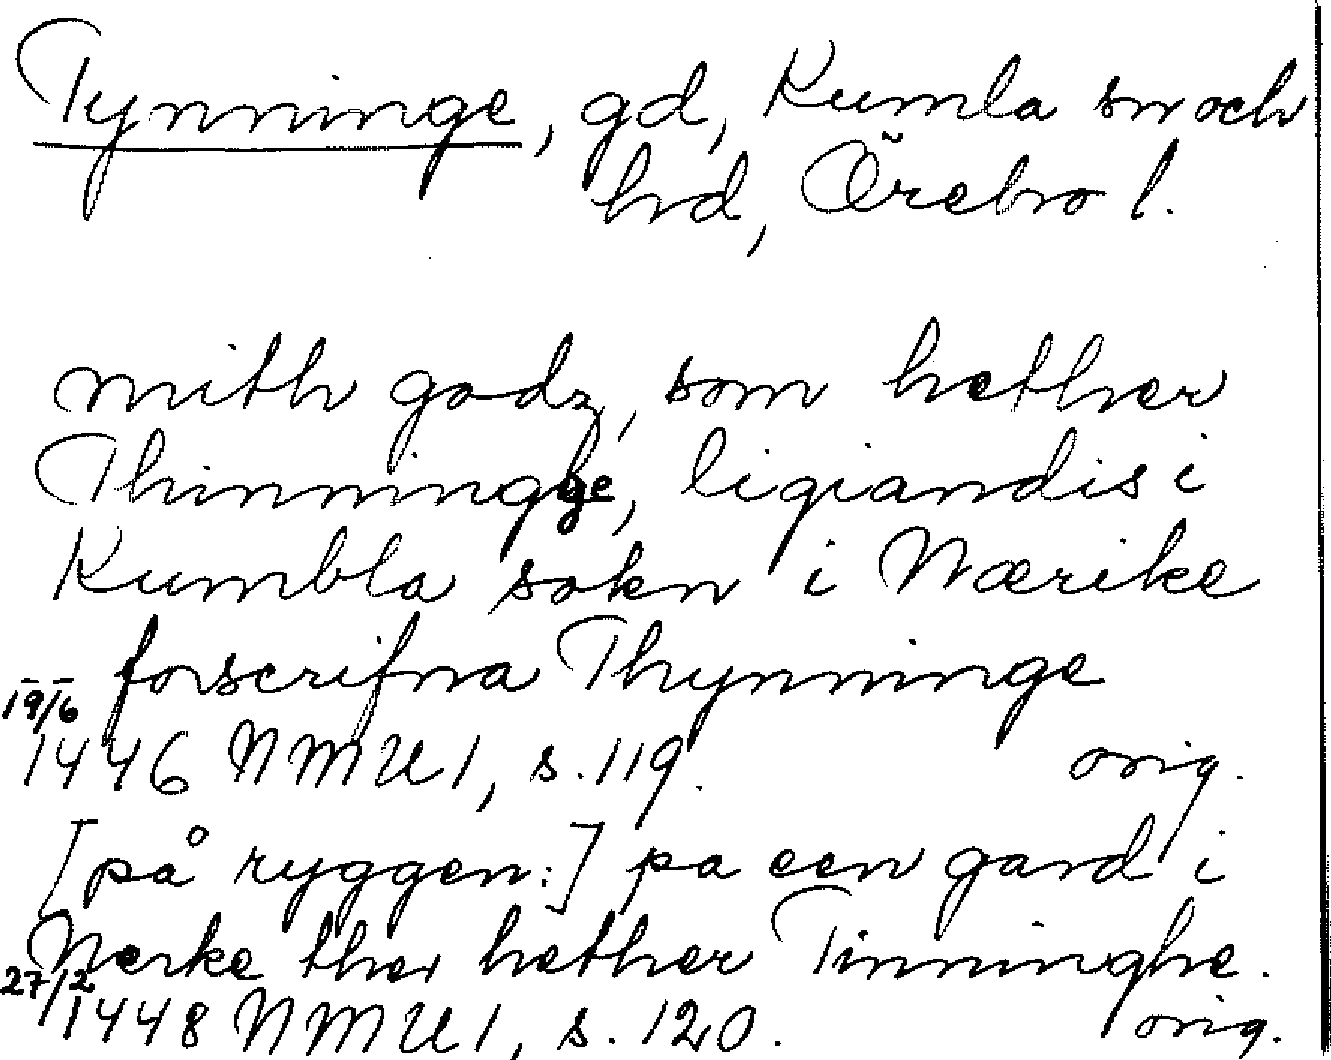 Tynninge, gd, Kumla sn och
hd, Örebro l.
mith godz, som hether
Thinningge, ligiandis i
Kumbla sokn i Nærike
forscrifna Thynninge
19/6
1446 NMU 1, s. 119. orig.
[på ryggen:] pa een gard i
Nerke ther hether Tinninghe.
27/2
1448 NMU 1, s. 120. orig.